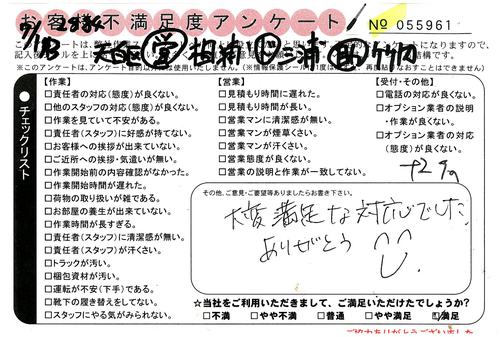 お客様不満足度アンケート
No 055961
※この
【作業】
□責任者の対応(態度)が良くない。
□他のスタッフの対応(態度)が良くない。
□作業を見ていて不安がある。
□責任者(スタッフ)に好感が持てない。
□お客様への挨拶が出来ていない。
□ご近所への挨拶・気遣いが無い。
□作業開始前の内容確認がなかった。
□作業開始時間が遅れた。
□荷物の取り扱いが雑である。
□お部屋の養生が出来ていない。
□作業時間が長すぎる。
□責任者(スタッフ)に清潔感が無い。
□責任者(スタッフ)が汗くさい。
□トラックが汚い。
□梱包資材が汚い。
□運転が不安(下手)である。
□靴下の履き替えをしてない。
□スタッフにやる気がみられない。
●チェックリスト
【営業】
□見積もりに遅れた。
□見積もり時間が長い。
□営業マンに清潔感が無い。
□営業マンが煙草くさい。
□営業マンが汗くさい。
□営業態度が良くない。
□営業の説明と作業が一致してない。
【受付・その他】
□電話の対応が良くない。
□オプション業者の説明・作業が良くない。
□オプション業者の対応(態度)が良くない。
その他、ご意見・ご要望等ありましたらお書き下さい。
大変満足な対応でした
ありがとう
☆当社をご利用いただきまして、ご満足いただけたでしょうか?
□不満 □やや不満 □普通 □やや満足 □満足
ご協力ありがとうございました